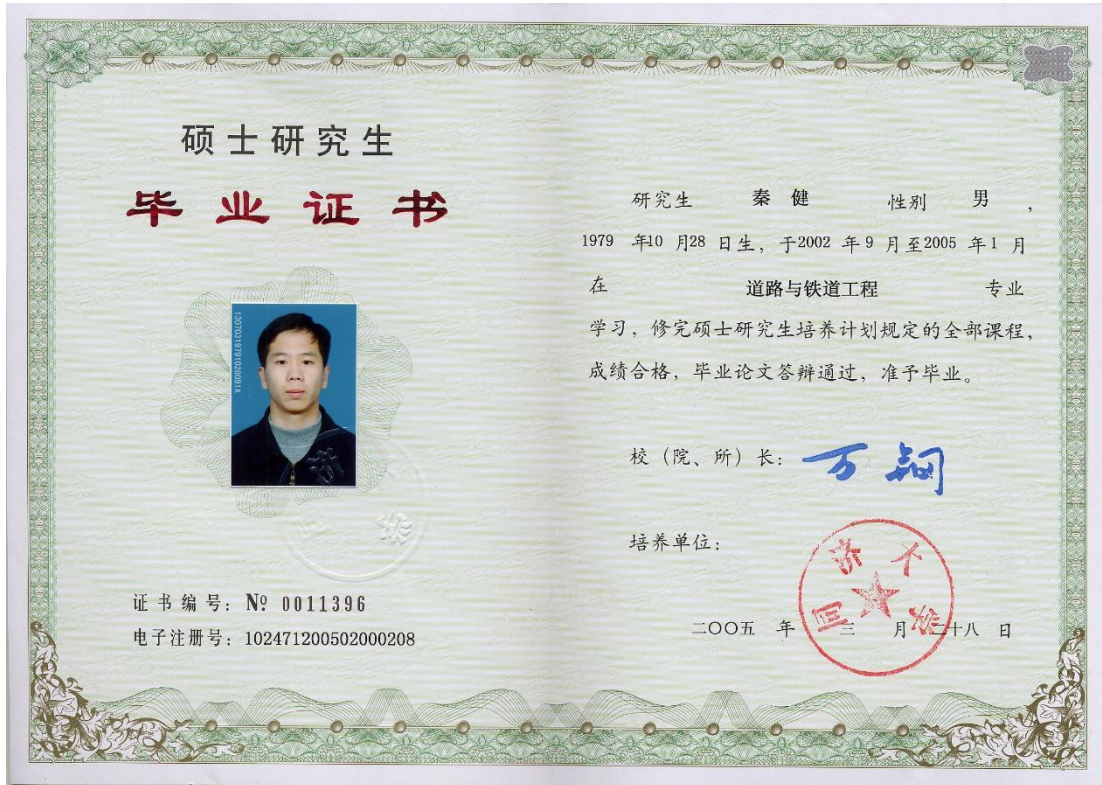 硕士研究生
毕业证书
13070319791028091X
济
同 济
证书编号：№ 0011396
电子注册号：102471200502000208
研究生 秦健 性别 男，
1979 年10 月28 日生，于2002 年 9 月至2005 年 1 月
在 道路与铁道工程 专业
学习，修完硕士研究生培养计划规定的全部课程，
成绩合格，毕业论文答辩通过，准予毕业。
校（院、所）长：万钢
培养单位：
同济大学
二〇〇五 年 三 月 二十八 日